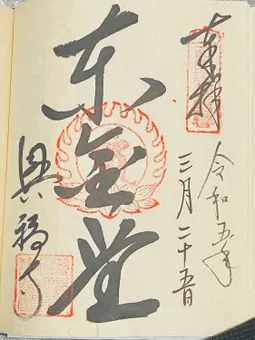 奉拝
令和五年
三月二十五日
东金堂
興福寺